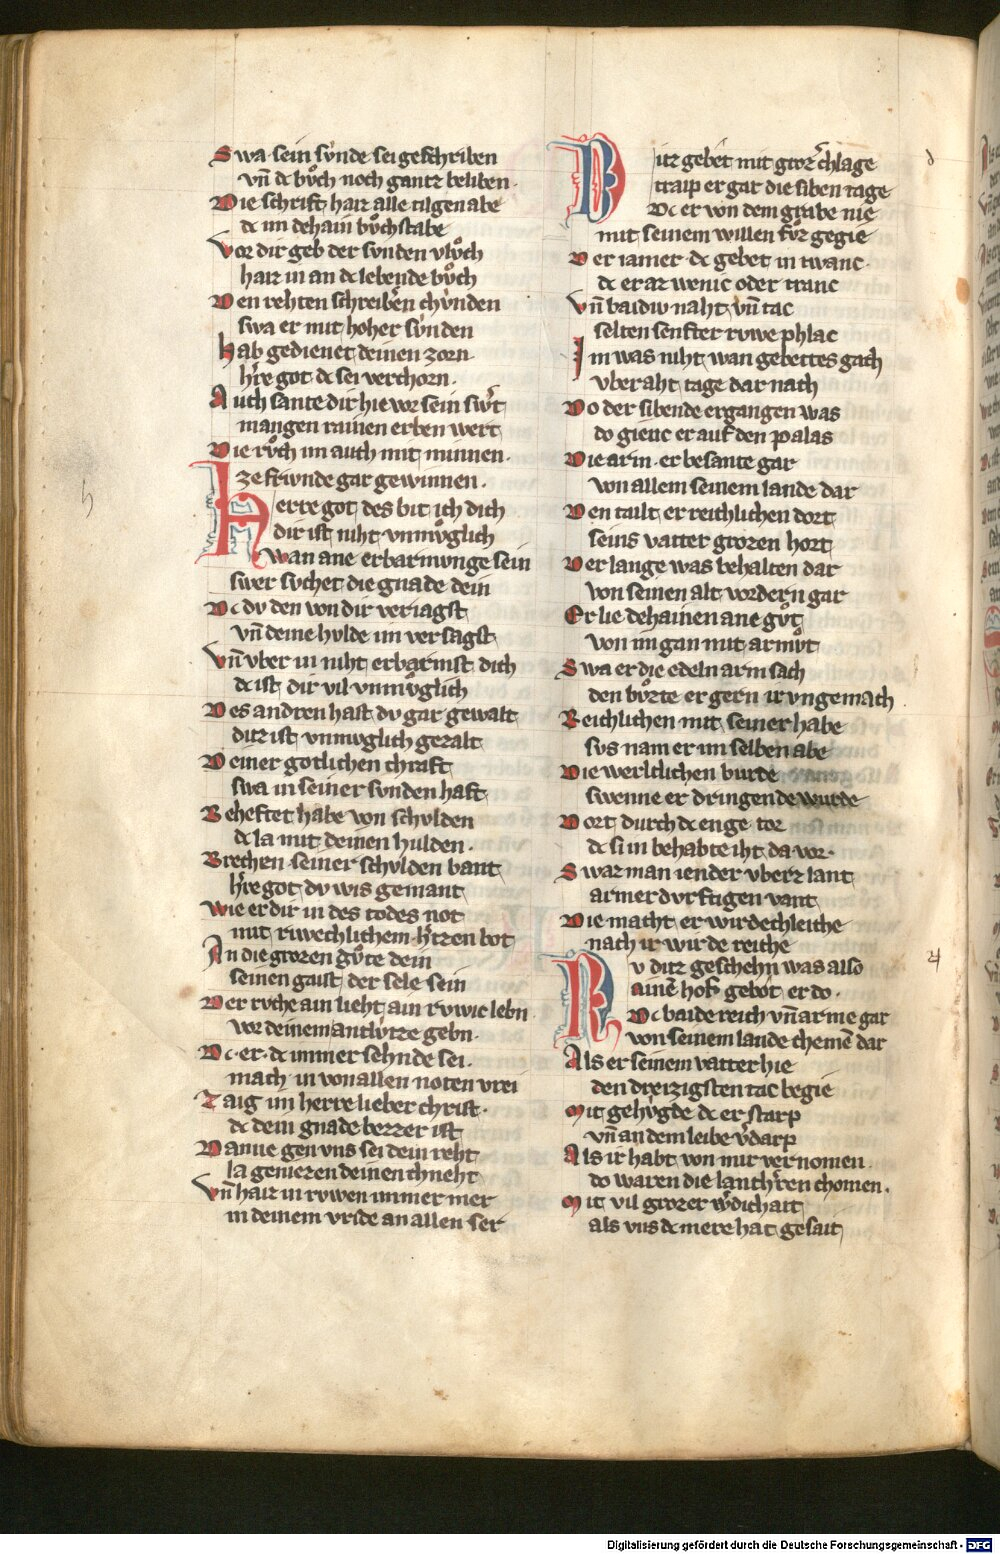 Swa sein sv̍nde sei geschriben
vn̄ dc bůch noch gantz beliben
Die schrift haiz alle tilgen abe
dc im dehain bůchstabe
Vor dir geb der svnden vlůch
haiz in an dc lebende bůch
Den rehten schreiben chv̍nden
swa er mit hoher sv̍nden
Hab gedienet deinen zorn
hr̄e got dc sei verchorn.
Auch sante dir hie vor sein swt̄
mangen rainen erben wert
Die růch im auch mit minnen.
ze friwnde gar gewinnen.
Herre got des bit ich dich
dir ist niht vnmůglich
Wan ane erbarmvnge sein
swer svchet die gnade dein
Dc dv den von dir veriagst
vn̄ deine hvlde im versagst
Vn̄ vber in niht erbarmst dich
dc ist dir vil vnmůglich
Des andren hast dv gar gewalt
ditz ist vnmvglich gezalt
Deiner gotlichen chraft
swa in seiner svnden haft
Beheftet habe von schvlden
dc la mit deinen hulden.
Brechen seiner schvlden bant
hr̄e got dv wis gemant
Wie er dir in des todes not
mit riwechlichem hr̄tzen bot
An die grozen gůte dein
seinen gaist der sele sein
Der rvche ain lieht ain rvwic lebn
vor deinem antlv̍tze gebn.
Dc er dc immer sehnde sei.
mach in von allen noten vrei
Taig im herre lieber christ.
dc dein gnade bezzer ist
Danne gen vns sei dein reht
la geniezen deinen chneht
Vn̄ haiz in rvwen immer mer
in deinem vride an allen ser
Ditz gebet mit groz̄ chlage
traip er gar die siben tage
Dc er von dem grabe nie
mit seinem willen fv̊r gegie
Der iamer dc gebet in twanc
dc er az wenic oder tranc
Vn̄ baidiw naht vn̄ tac
selten senfter rvwe phlac
Im was niht wan gebettes gach
vber aht tage dar nach
Do der sibende ergangen was
do gienc er auf den palas
Die arm er besante gar
von allem seinem lande dar
Den tailt er reichlichen dort
seins vatter grozen hort
Der lange was behalten dar
von seinen alt vordern gar
Er lie dehainen ane gůt
von im gan mit armůt
Swa er die edeln arm sach
den bůzte er gern ir vngemach
Reichlichen mit seiner habe
svs nam er im selben abe
Die werltlichen burde
swenne er dringende wurde
Dort durch dc enge tor
dc si in behabte iht da vor
Swar man iender vberz lant
armer dvrftigen vant
Die macht er wirdechleiche
nach ir wirde reiche
Nv ditz geschehn was also
ainē hof gebot er do.
Dc baide reich vn̄ arme gar
von seinem lande chemē dar
Als er seinem vatter hie
den dreizigsten tac begie
Mit gehv̍gde dc er starp
vn̄ an dem leibe v̄darp
Als ir habt von mir vernomen.
do waren die lanthr̄ren chomen.
Mit vil grozer wd̄ichait
als vns dc mere hat gesait
Digitalisierung gefördert durch die Deutsche Forschungsgemeinschaft - DFG